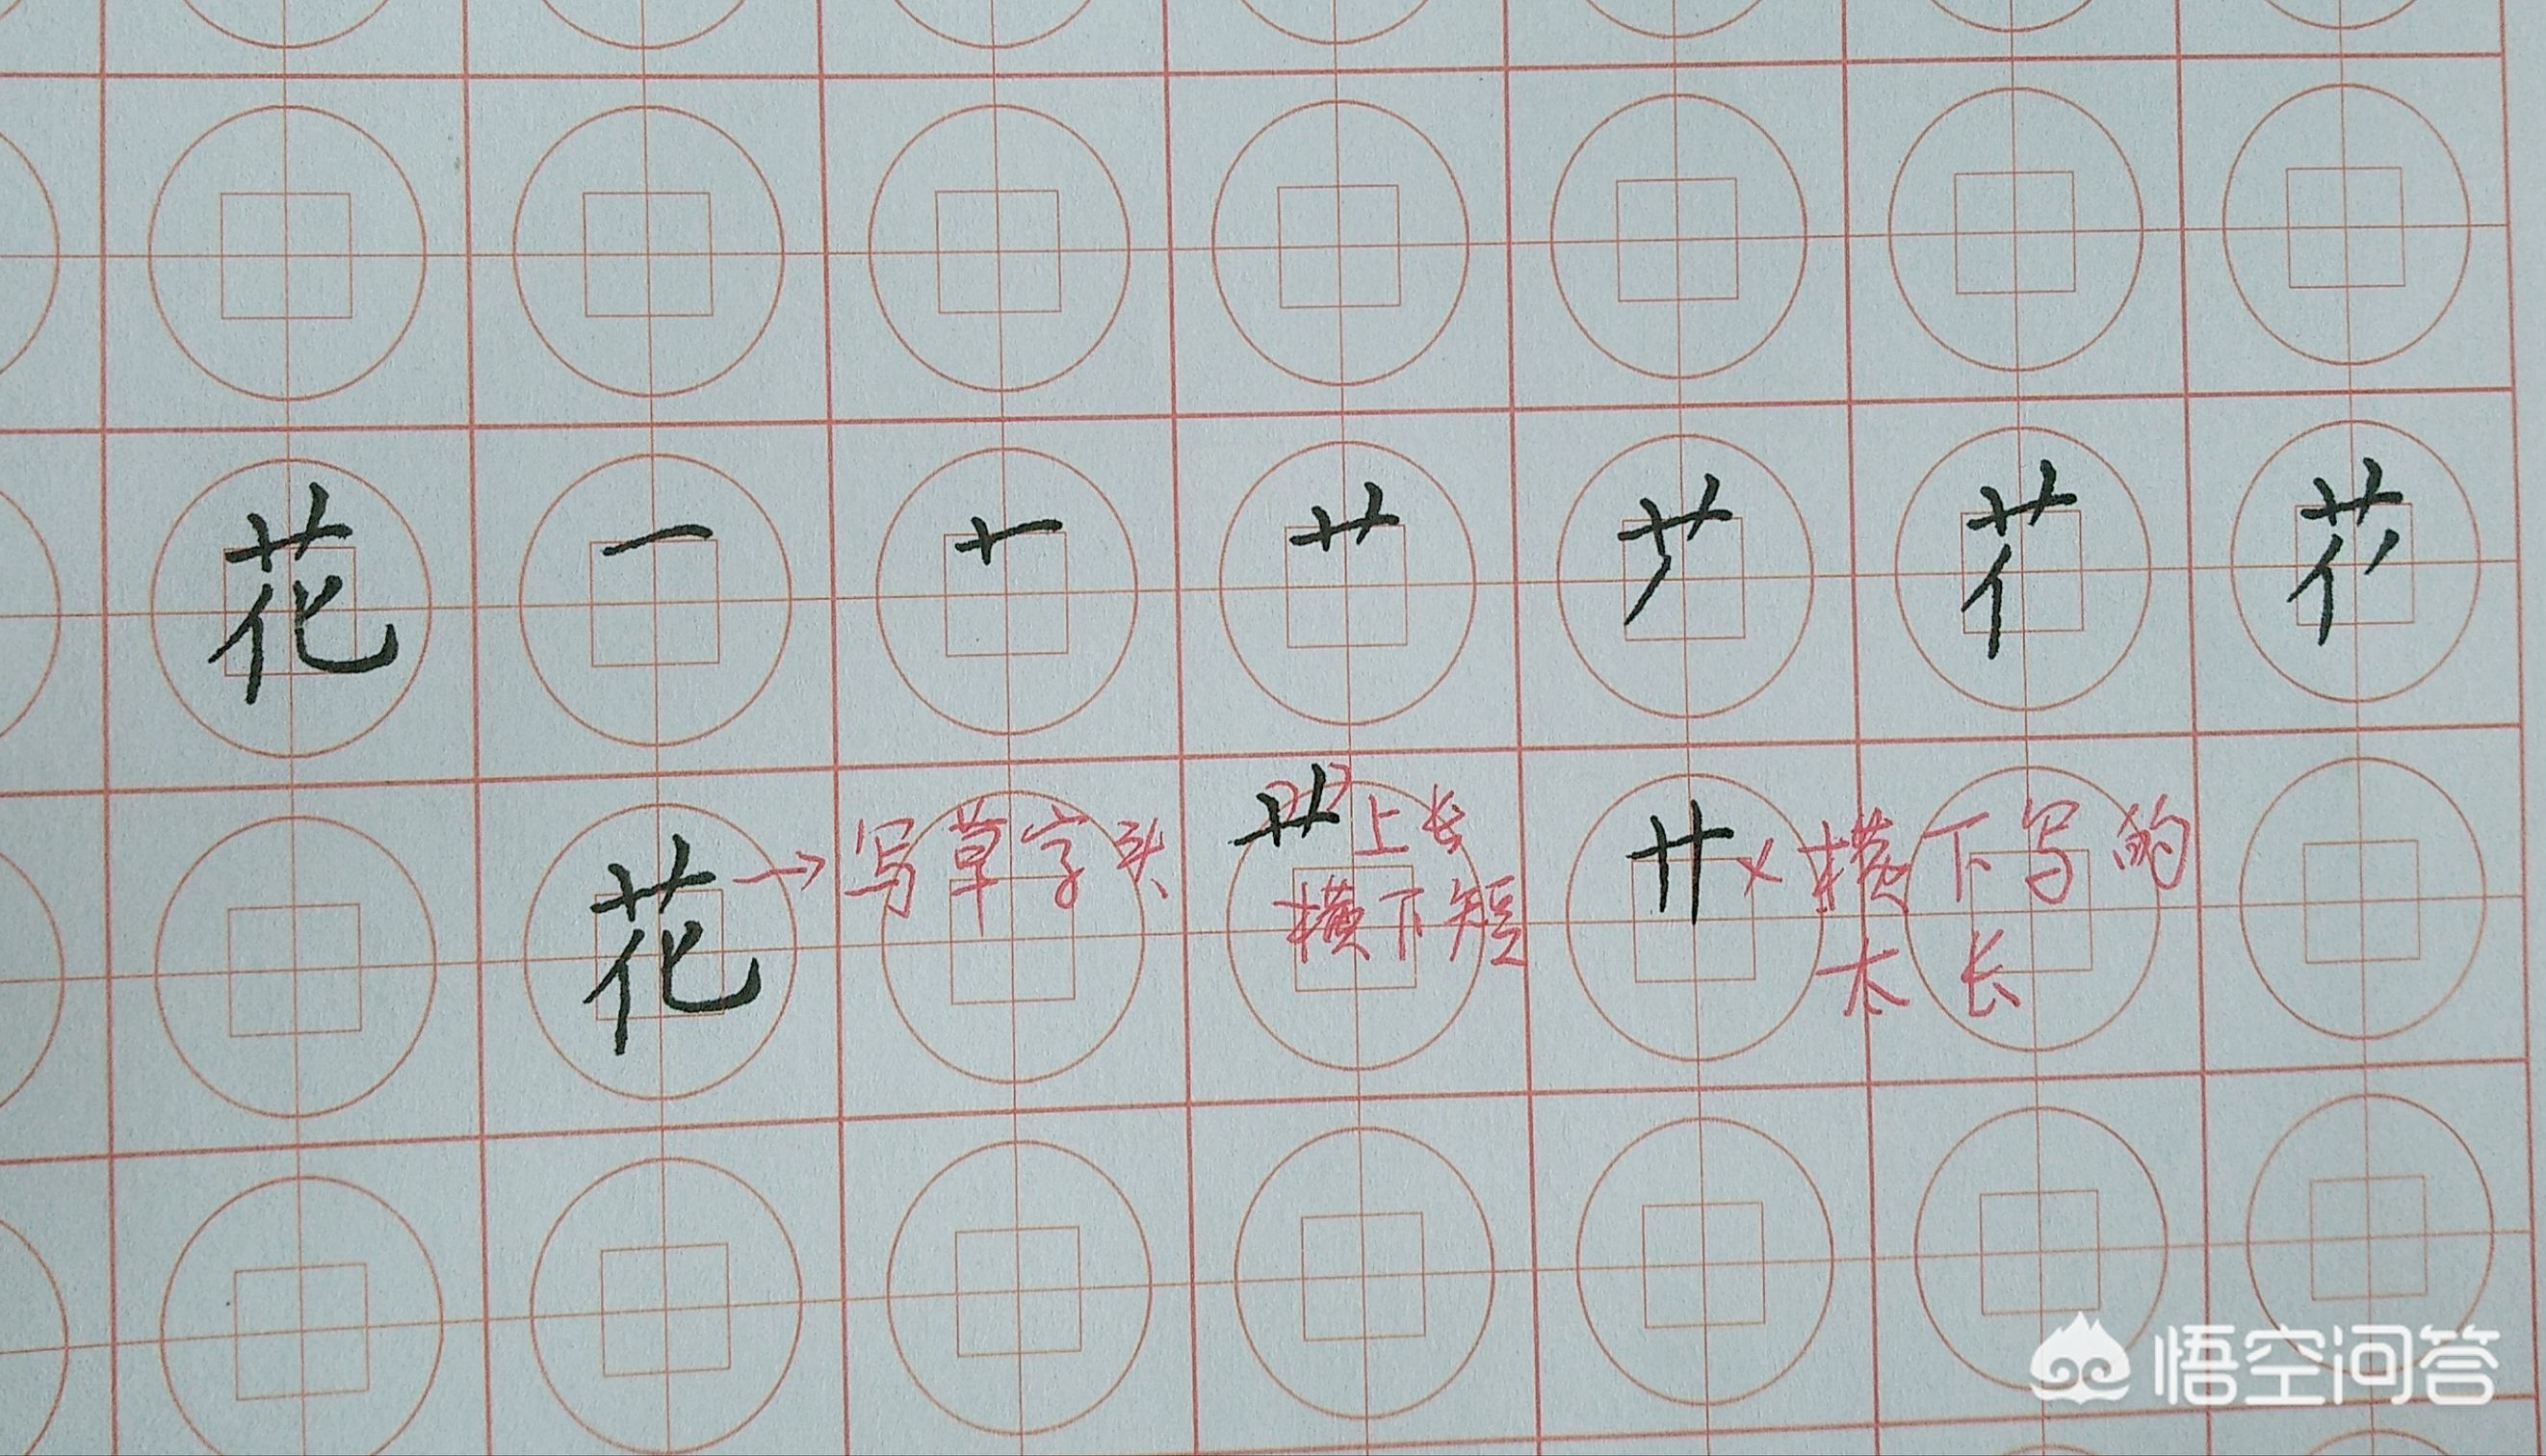 花 一 十一 艹
花 → 写草字头 艹 上长 艹 × 横下写的
横下短 太长
悟空问答